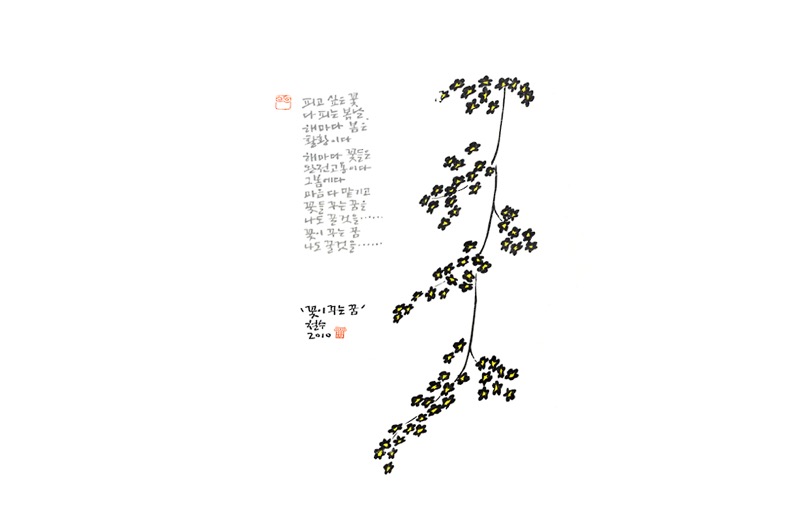 피고 싶은 꽃
나 피는 봄날
해마다 봄은
활황이다
해마다 꽃들은
완전고통이다
그봄에다
마음 다 맡기고
꽃들 꾸는 꿈을
나도 꿀 것을……
꽃이 꾸는 꿈
나도 꿀것을……
'꽃이 꾸는 꿈'
철수
2010